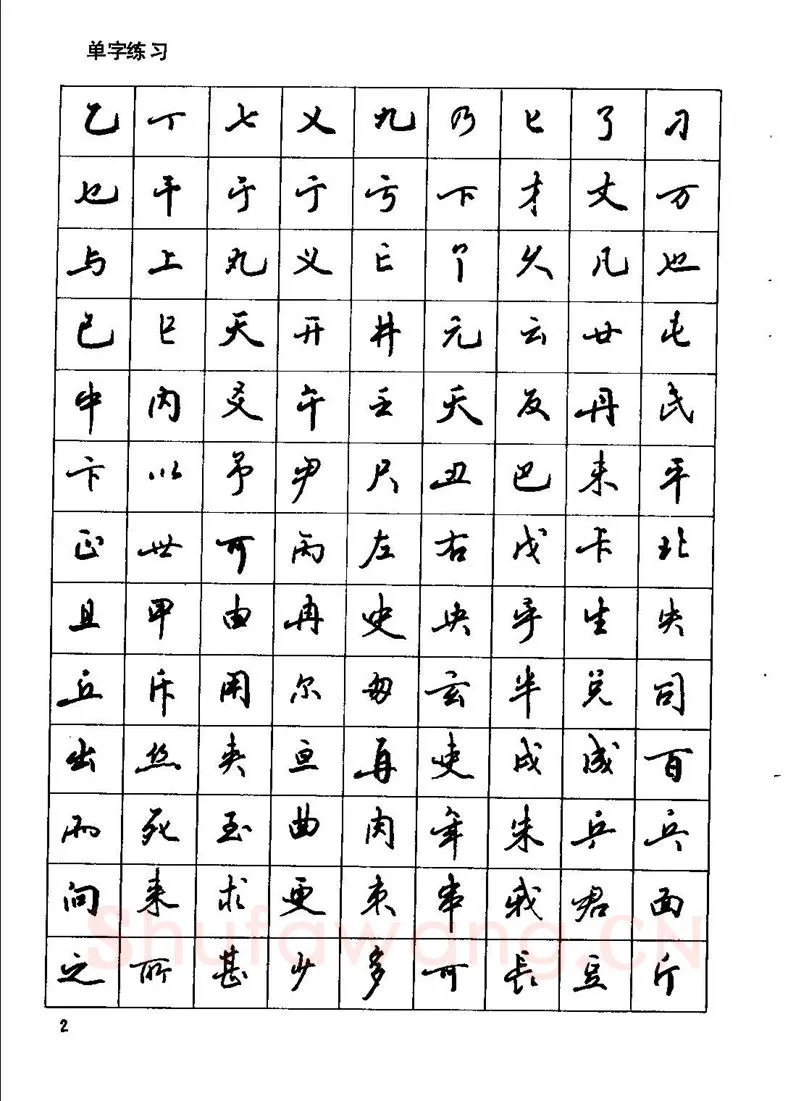 单字练习
乙 丁 七 乂 九 乃 匕 了 刁
七 干 于 于 亏 下 才 丈 万
与 上 丸 义 亡 久 凡 也
已 巳 天 开 井 元 云 廿 屯
中 内 爻 午 壬 夭 反 丹 氏
卞 以 予 尹 尺 丑 巴 未 平
正 世 可 丙 左 右 戊 卡 北
且 甲 由 冉 史 央 乎 生 失
丘 斥 用 尔 匆 玄 半 兑 司
出 丝 夹 亘 再 吏 戍 成 百
而 死 至 曲 肉 年 朱 兵 兵
向 来 求 更 束 串 我 君 面
之 所 甚 少 多 可 長 豆 斤
Shufawang.CN
2